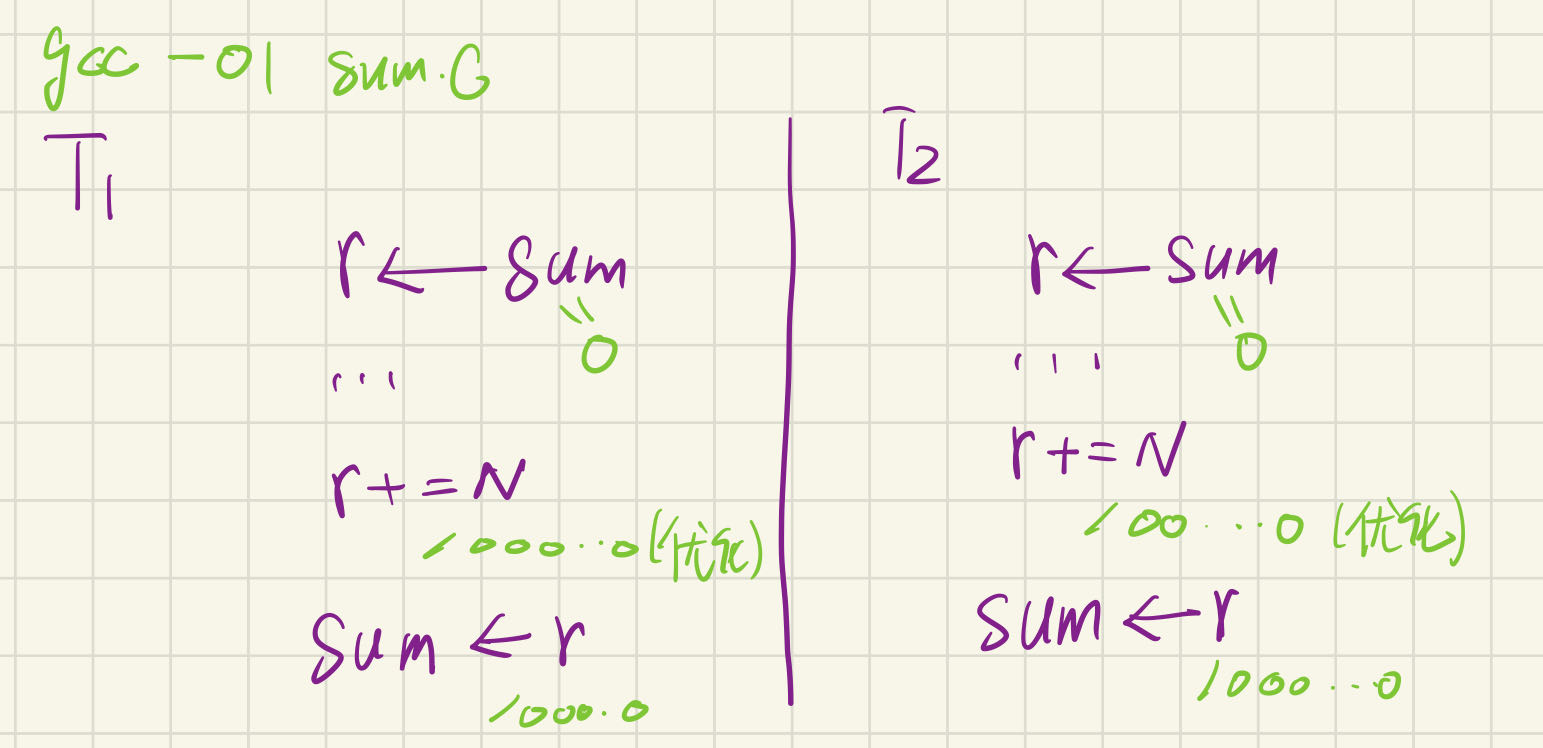 gcc -O1 sum.c
T1
r ← sum
= 0
...
r += N
1000...0 (优化)
sum ← r
1000..0
T2
r ← sum
= 0
...
r += N
100...0 (优化)
sum ← r
1000...0